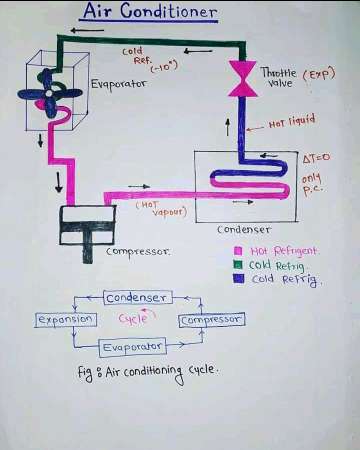 Air Conditioner
Cold
Ref.
(-10°)
Evaporator
Throttle (Exp)
valve
Hot liquid
ΔT=0
only
P.C.
(HOT
vapour)
Condenser
Compressor.
Hot Refrigent
Cold Refrig.
Cold Refrig.
Condenser
expansion
Cycle
Compressor
Evaporator
Fig : Air conditioning cycle.